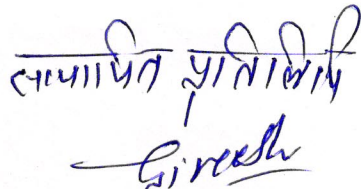 सत्यापित प्रतिलिपि
Gireesh